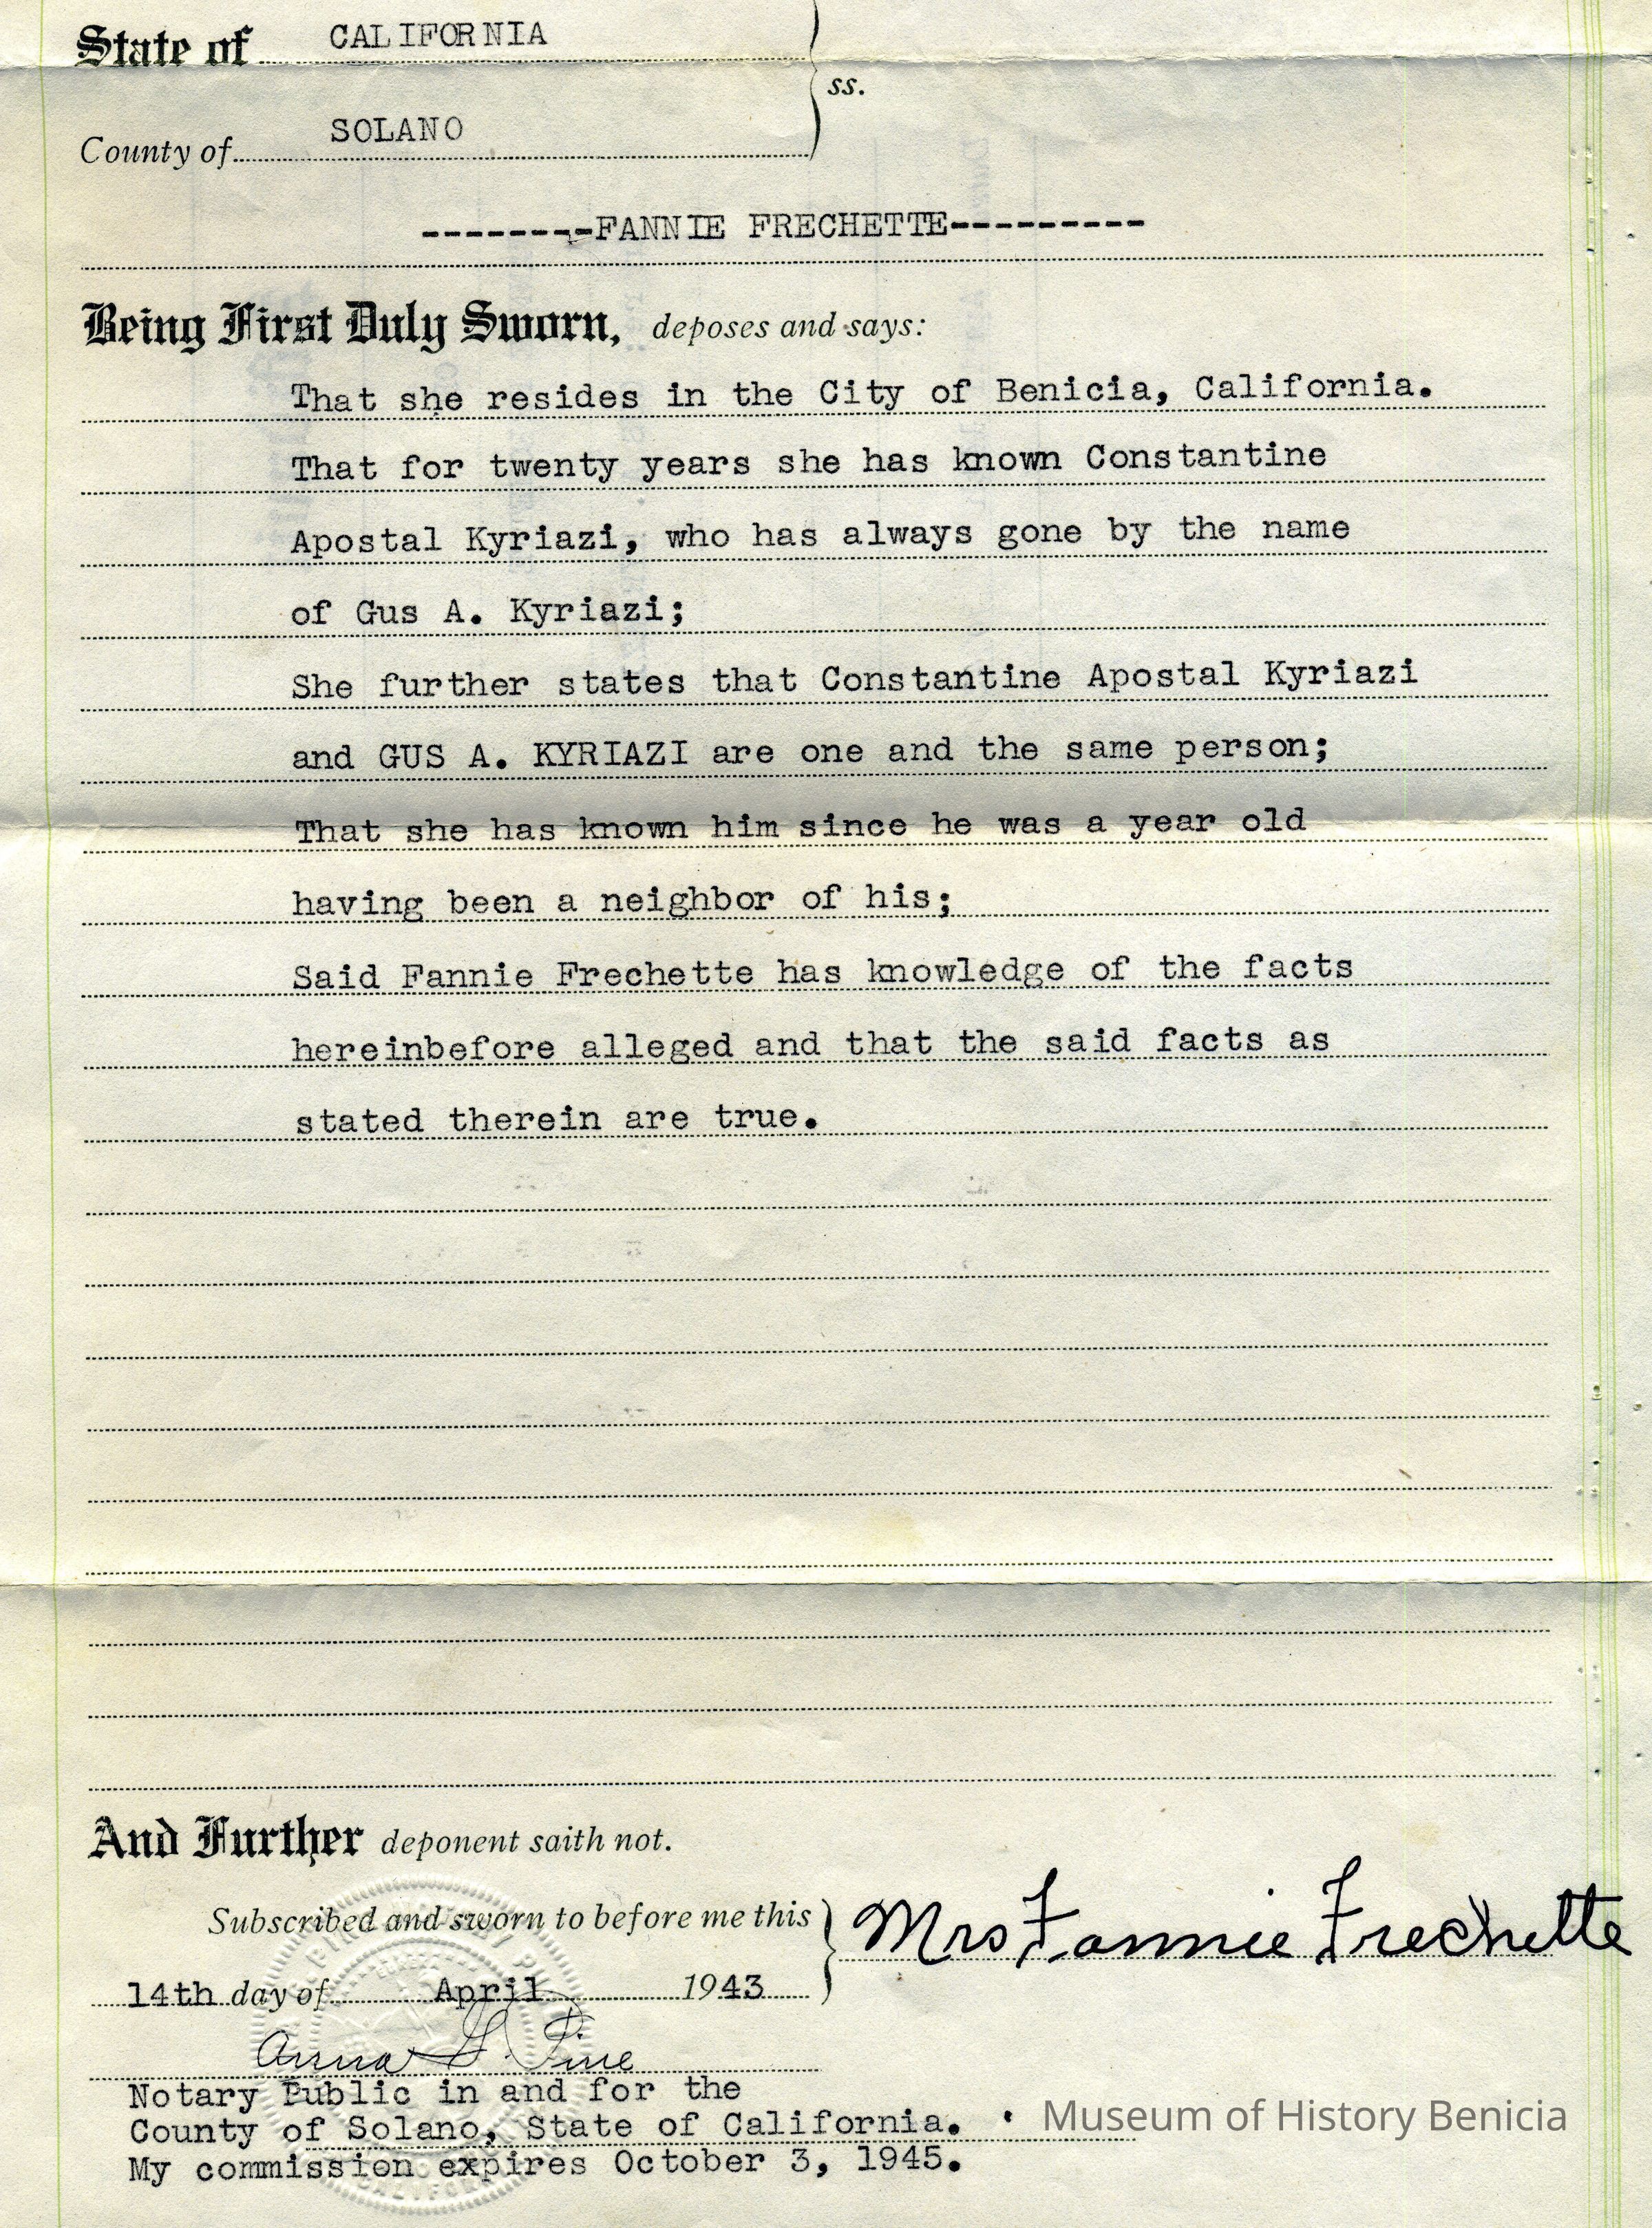 State of CALIFORNIA
ss.
County of SOLANO
--------FANNIE FRECHETTE---------
Being First Duly Sworn, deposes and says:
That she resides in the City of Benicia, California.
That for twenty years she has known Constantine
Apostal Kyriazi, who has always gone by the name
of Gus A. Kyriazi;
She further states that Constantine Apostal Kyriazi
and GUS A. KYRIAZI are one and the same person;
That she has known him since he was a year old
having been a neighbor of his;
Said Fannie Frechette has knowledge of the facts
hereinbefore alleged and that the said facts as
stated therein are true.
And Further deponent saith not.
Subscribed and sworn to before me this
Mrs Fannie Frechette
14th day of April 1943
Anna G. Pine
Notary Public in and for the
County of Solano, State of California.
My commission expires October 3, 1945.
Museum of History Benicia
CALIFORNIA